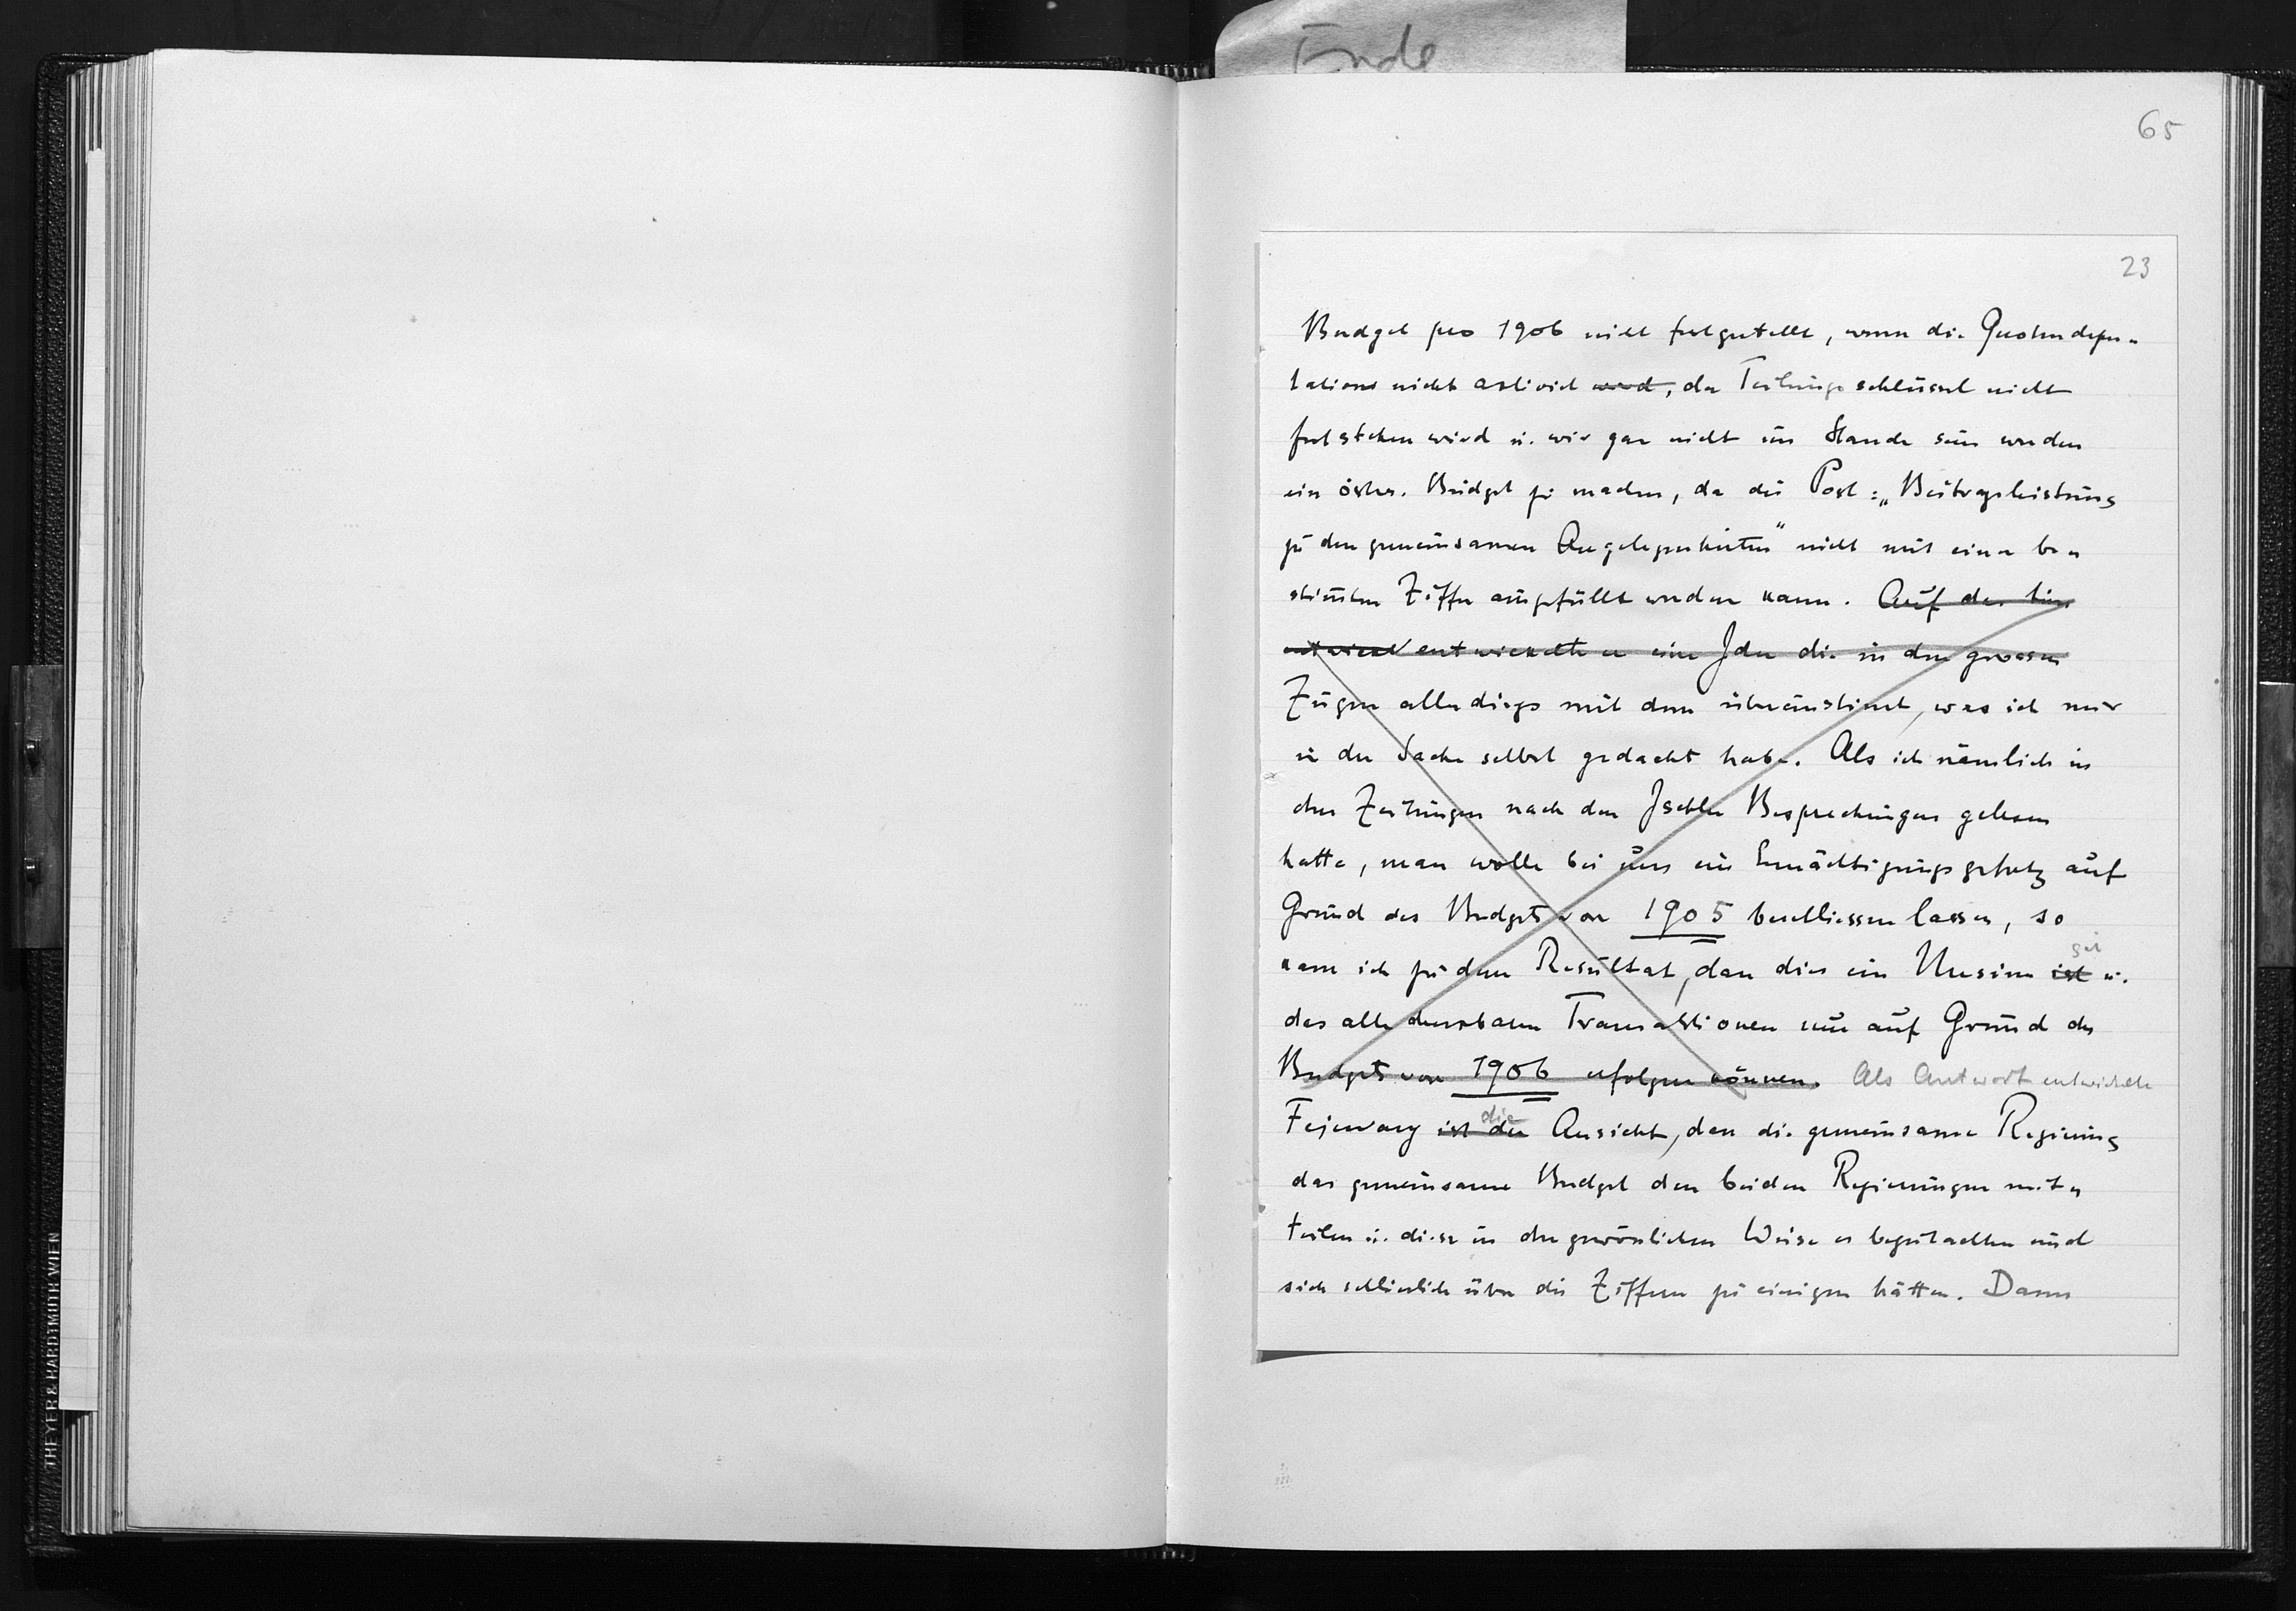 Ende
65
23
Budget pro 1906 nicht festgestellt, wenn die Quotendepu-
tationen nicht activirt wird, der Teilungsschlüssel nicht
feststehen wird u. wir gar nicht im Stande sein werden
ein österr. Budget zu machen, da die Post: „Beitragsleistung
zu den gemeinsamen Angelegenheiten" nicht mit einer be-
stimten Ziffer ausgefüllt werden kann. Auf das hin
entwickel entwickelte er eine Idee die in den grossen
Zügen allerdings mit dem übereinstimt, was ich mir
in der Sache selbst gedacht habe. Als ich nämlich in
den Zeitungen nach den Ischler Besprechungen gelesen
hatte, man wolle bei uns ein Ermächtigungsgesetz auf
Grund des Budgets von 1905 beschliessen lassen, so
kam ich zu dem Resultat, dass dies ein Unsinn ist sei u.
das alle denkbaren Transaktionen nur auf Grund des
Budgets von 1906 erfolgen können. Als Antwort entwickelte
Fejervary ist der die Ansicht, dass die gemeinsame Regierung
das gemeinsame Budget den beiden Regierungen mit-
teilen u. diese in der gewönlichen Weise es begutachten und
sich schliesslich über die Ziffern zu einigen hätten. Dann
THEYER & HARDTMUTH WIEN